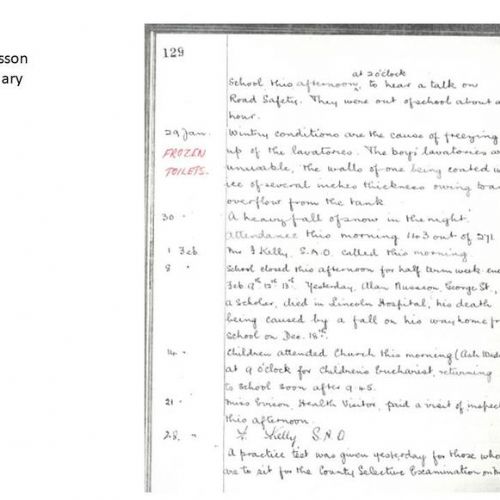 sson
ary
129
at 2 o'clock
School this afternoon ^ to hear a talk on
Road Safety. They were out of school about a
hour.
29 Jan. Wintry conditions are the cause of freezing
FROZEN up of the lavatories. The boys' lavatories a
TOILETS. unusable, the walls of one being coated w
ice of several inches thickness owing to a
overflow from the tank
30 " A heavy fall of snow in the night.
Attendance this morning 143 out of 271
1 Feb Mr F Kelly, S.A.O. called this morning.
8 " School closed this afternoon for half term week en
Feb 9th 12th 13th. Yesterday, Alan Musson, George St.,
a scholar, died in Lincoln Hospital, his death
being caused by a fall on his way home fr
school on Dec. 18th.
14 " Children attended Church this morning (Ash Wed
at 9 o'clock for Children's Eucharist, returning
to school soon after 9.45.
21 " Miss Evison, Health Visitor, paid a visit of inspec
this afternoon.
28 " F. Kelly S.A.O
A practice test was given yesterday for those who
are to sit for the County Selective Examination on